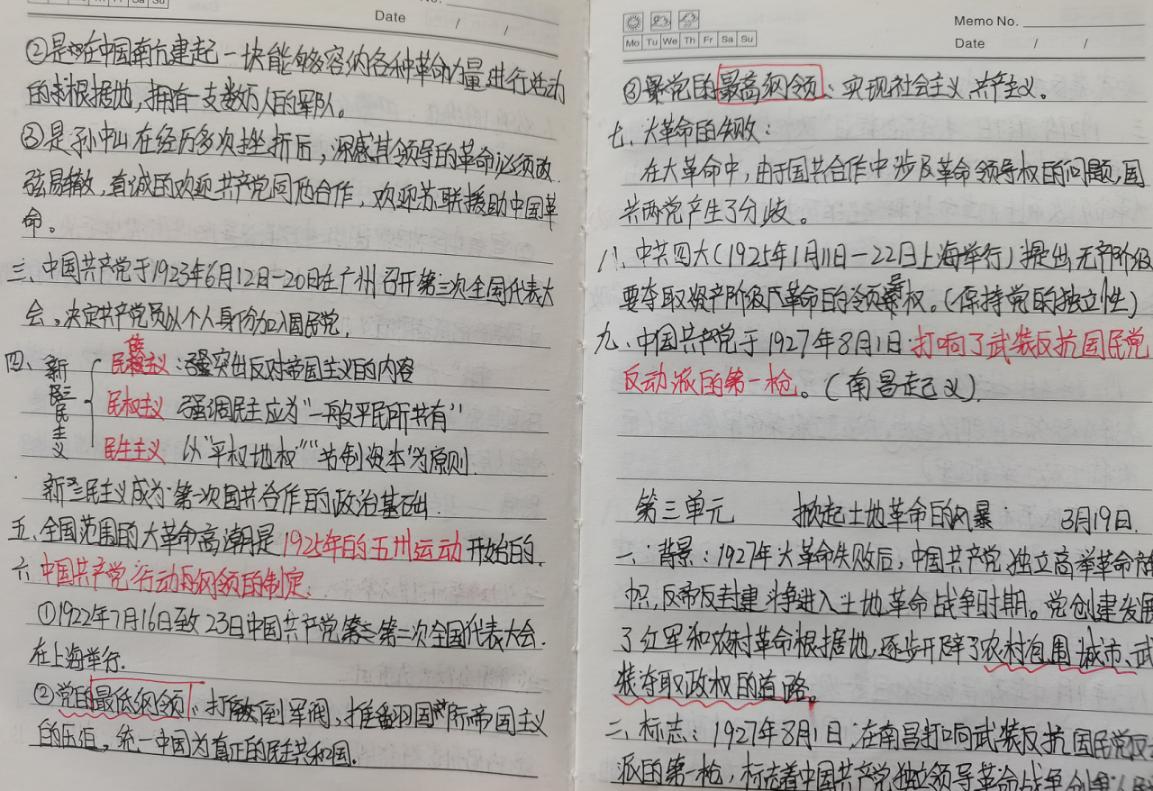 Date / /
②是在中国南方建起一块能够容纳各种革命力量进行活动
的根据地，拥有一支数万人的军队。
③是孙中山在经历多次挫折后，深感其领导的革命必须改
弦易辙，真诚的欢迎共产党同他合作，欢迎苏联援助中国革
命。
三、中国共产党于1923年6月12日-20日在广州召开第三次全国代表大
会，决定共产党员以个人身份加入国民党.
四、新三民主义
民族主义：强突出反对帝国主义的内容
民权主义 强调民主应为"一般平民所共有"
民生主义 以"平权地权""节制资本"为原则.
新三民主义成为第一次国共合作的政治基础.
五、全国范围的大革命高潮是1925年的五州运动开始的.
六 中国共产党行动的纲领的制定：
①1922年7月16日致23日中国共产党第二次全国代表大会.
在上海举行.
②党的最低纲领：打倒军阀，推翻国际帝国主义
的压迫，统一中国为真正的民主共和国.
Mo Tu We Th Fr Sa Su
Memo No.
Date / /
③党的最高纲领：实现社会主义、共产主义。
七、大革命的失败：
在大革命中，由于国共合作中涉及革命领导权的问题，国
共两党产生了分歧。
八、中共四大(1925年1月11日-22日上海举行)提出无产阶级
要夺取资产阶级民革命的领导权。(保持党的独立性)
九、中国共产党于1927年8月1日打响了武装反抗国民党
反动派的第一枪。(南昌起义).
第三单元 掀起土地革命的风暴 3月19日.
一、背景：1927年大革命失败后，中国共产党独立高举革命旗
帜，反帝反封建斗争进入土地革命战争时期。党创建发展
了红军和农村革命根据地，逐步开辟了农村包围城市、武
装夺取政权的道路。
二、标志：1927年8月1日，在南昌打响武装反抗国民党反
派的第一枪，标志着中国共产党独立领导革命战争